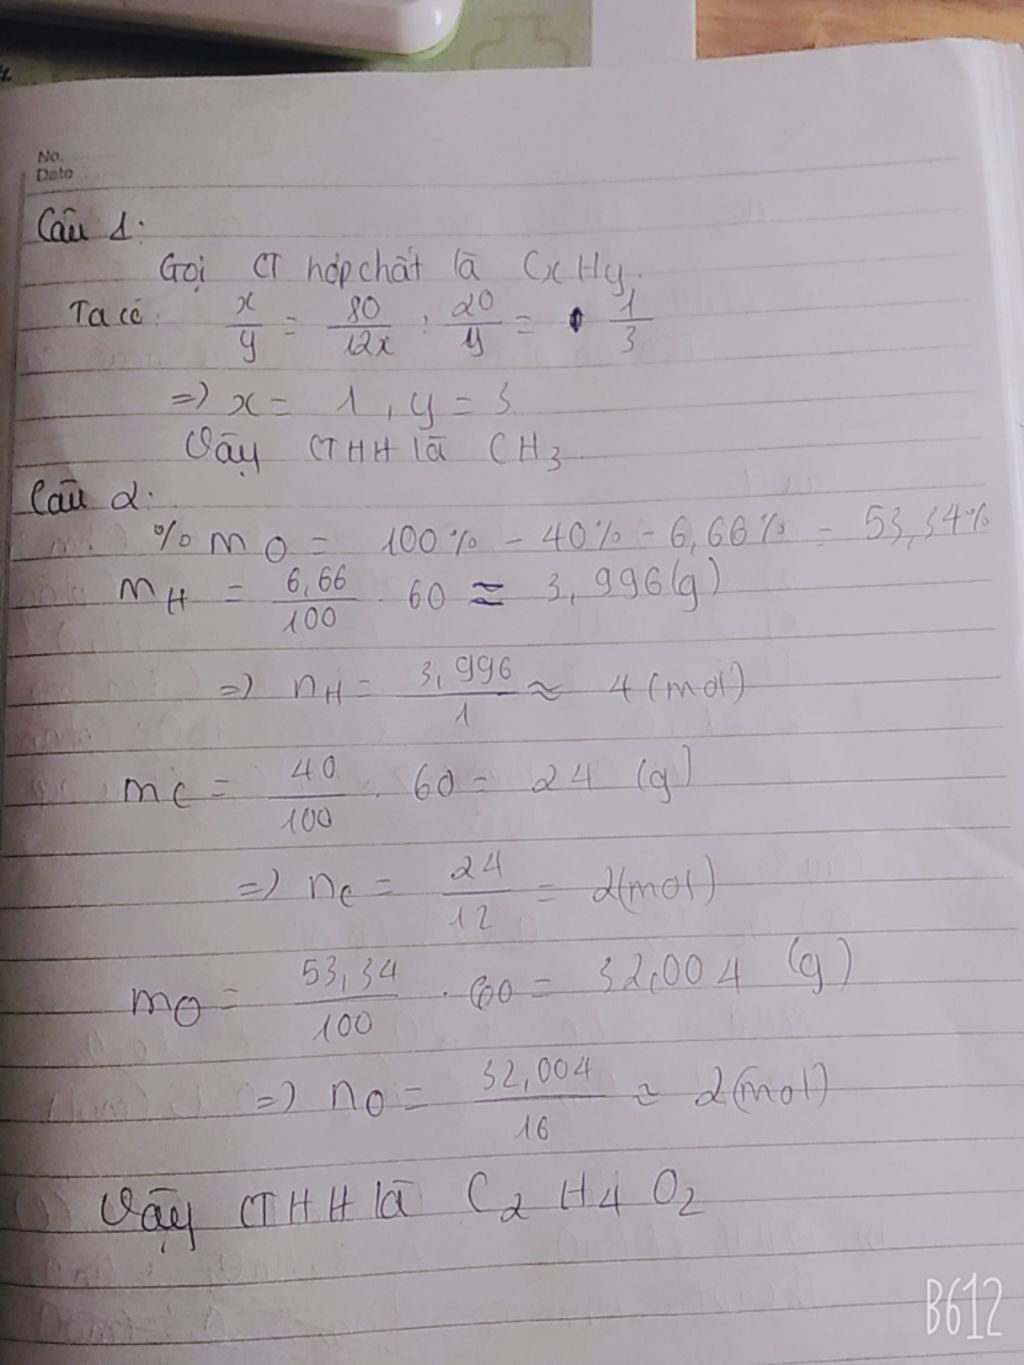 No.
Date
Câu 1:
Gọi CT hợp chất là CxHy.
Ta có: x/y = 80/12x : 20/y = 1/3
=> x = 1, y = 3
Vậy CTHH là CH3
Câu 2:
%mO = 100% - 40% - 6,66% = 53,34%
mH = 6,66/100 . 60 ≈ 3,996(g)
=> nH = 3,996/1 ≈ 4(mol)
mC = 40/100 . 60 = 24 (g)
=> nC = 24/12 = 2(mol)
mO = 53,34/100 . 60 = 32,004 (g)
=> nO = 32,004/16 ≈ 2(mol)
Vậy CTHH là C2H4O2
B612